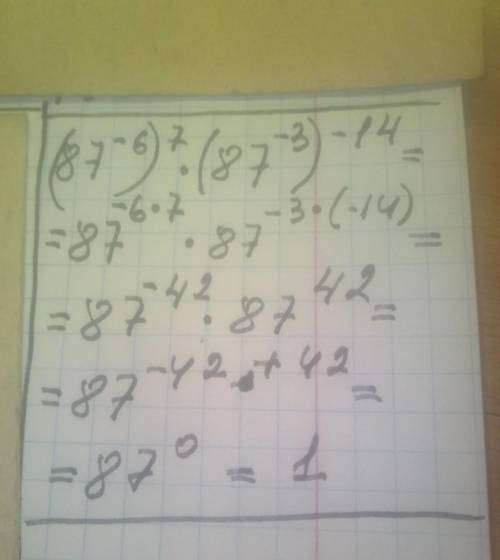 (87⁻⁶)⁷ · (87⁻³)⁻¹⁴ =
= 87⁻⁶·⁷ · 87⁻³·⁽⁻¹⁴⁾ =
= 87⁻⁴² · 87⁴² =
= 87⁻⁴²⁺⁴² =
= 87⁰ = 1